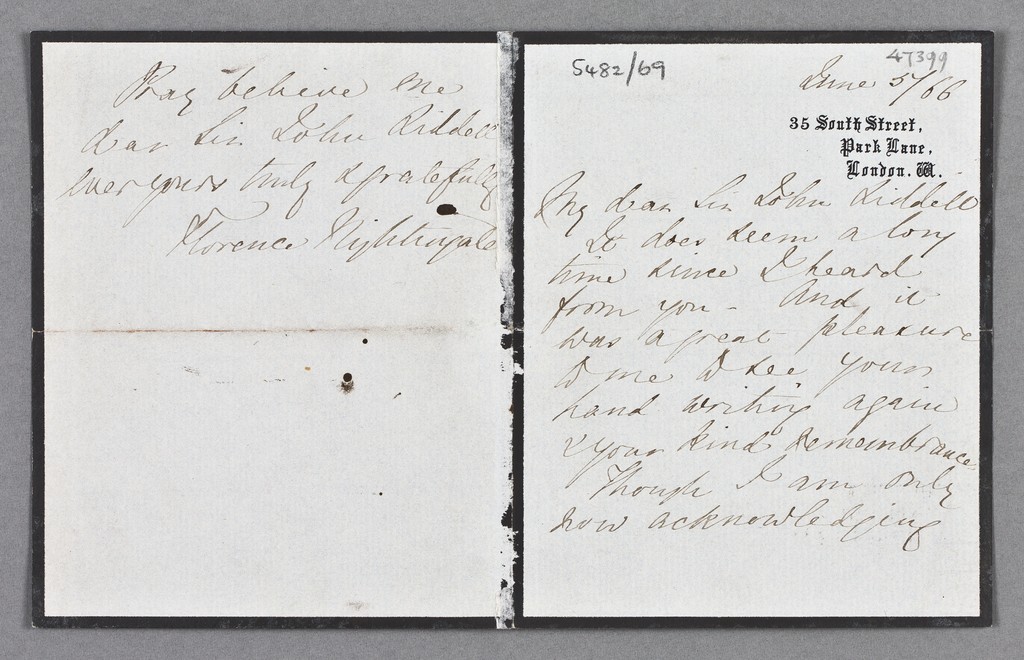 Pray believe me
dear Sir John Liddell
ever yours truly & gratefully
Florence Nightingale
5482/69
47399
June 5/66
35 South Street,
Park Lane,
London. W.
My dear Sir John Liddell
It does seem a long
time since I heard
from you - And it
was a great pleasure
to me to see your
hand writing again
& your kind remembrance
Though I am only
now acknowledging